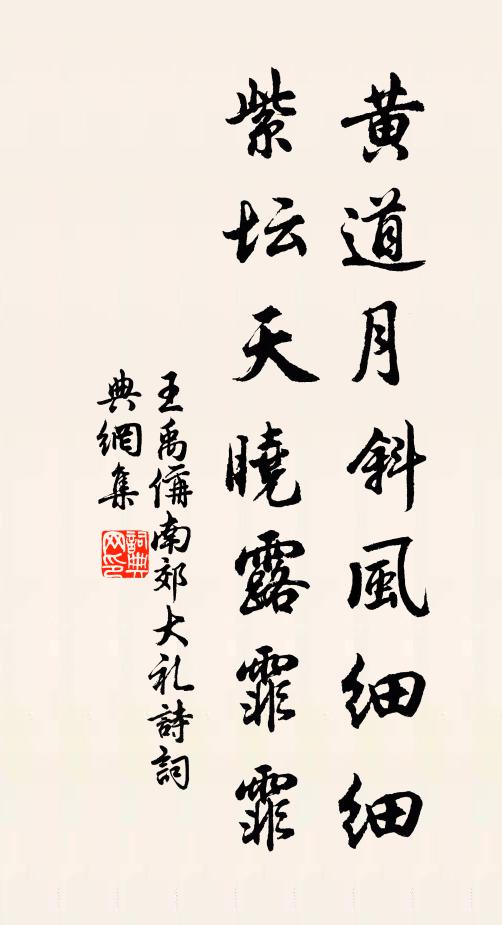 黄道月斜風細細
紫坛天曉露霏霏
王禹偁南郊大礼詩詞
典網集
詞典
网印